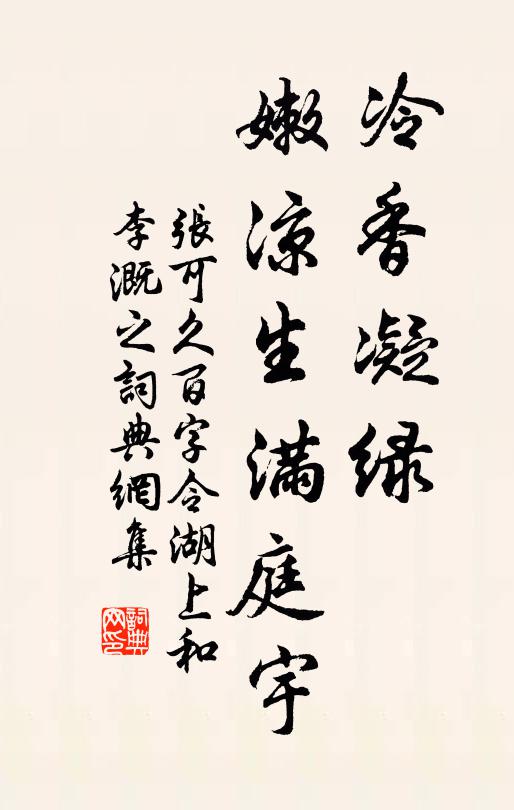 冷香凝绿
嫩凉生满庭宇
張可久百字令湖上和
李溉之詞典網集
詞典
网印